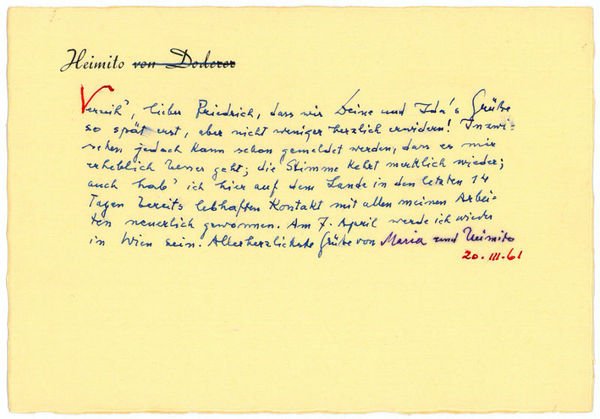 Heimito von Doderer
Verzeih', lieber Friedrich, dass wir Deine und Ida's Grüße
so spät erst, aber nicht weniger herzlich erwidern! Inzwi-
schen jedoch kann schon gemeldet werden, dass es mir
erheblich besser geht; die Stimme kehrt merklich wieder;
auch hab' ich hier auf dem Lande in den letzten 14
Tagen bereits lebhaften Kontakt mit allen meinen Arbei-
ten neuerlich gewonnen. Am 7. April werde ich wieder
in Wien sein. Allerherzlichste Grüße von Maria und Heimito
20. III. 61